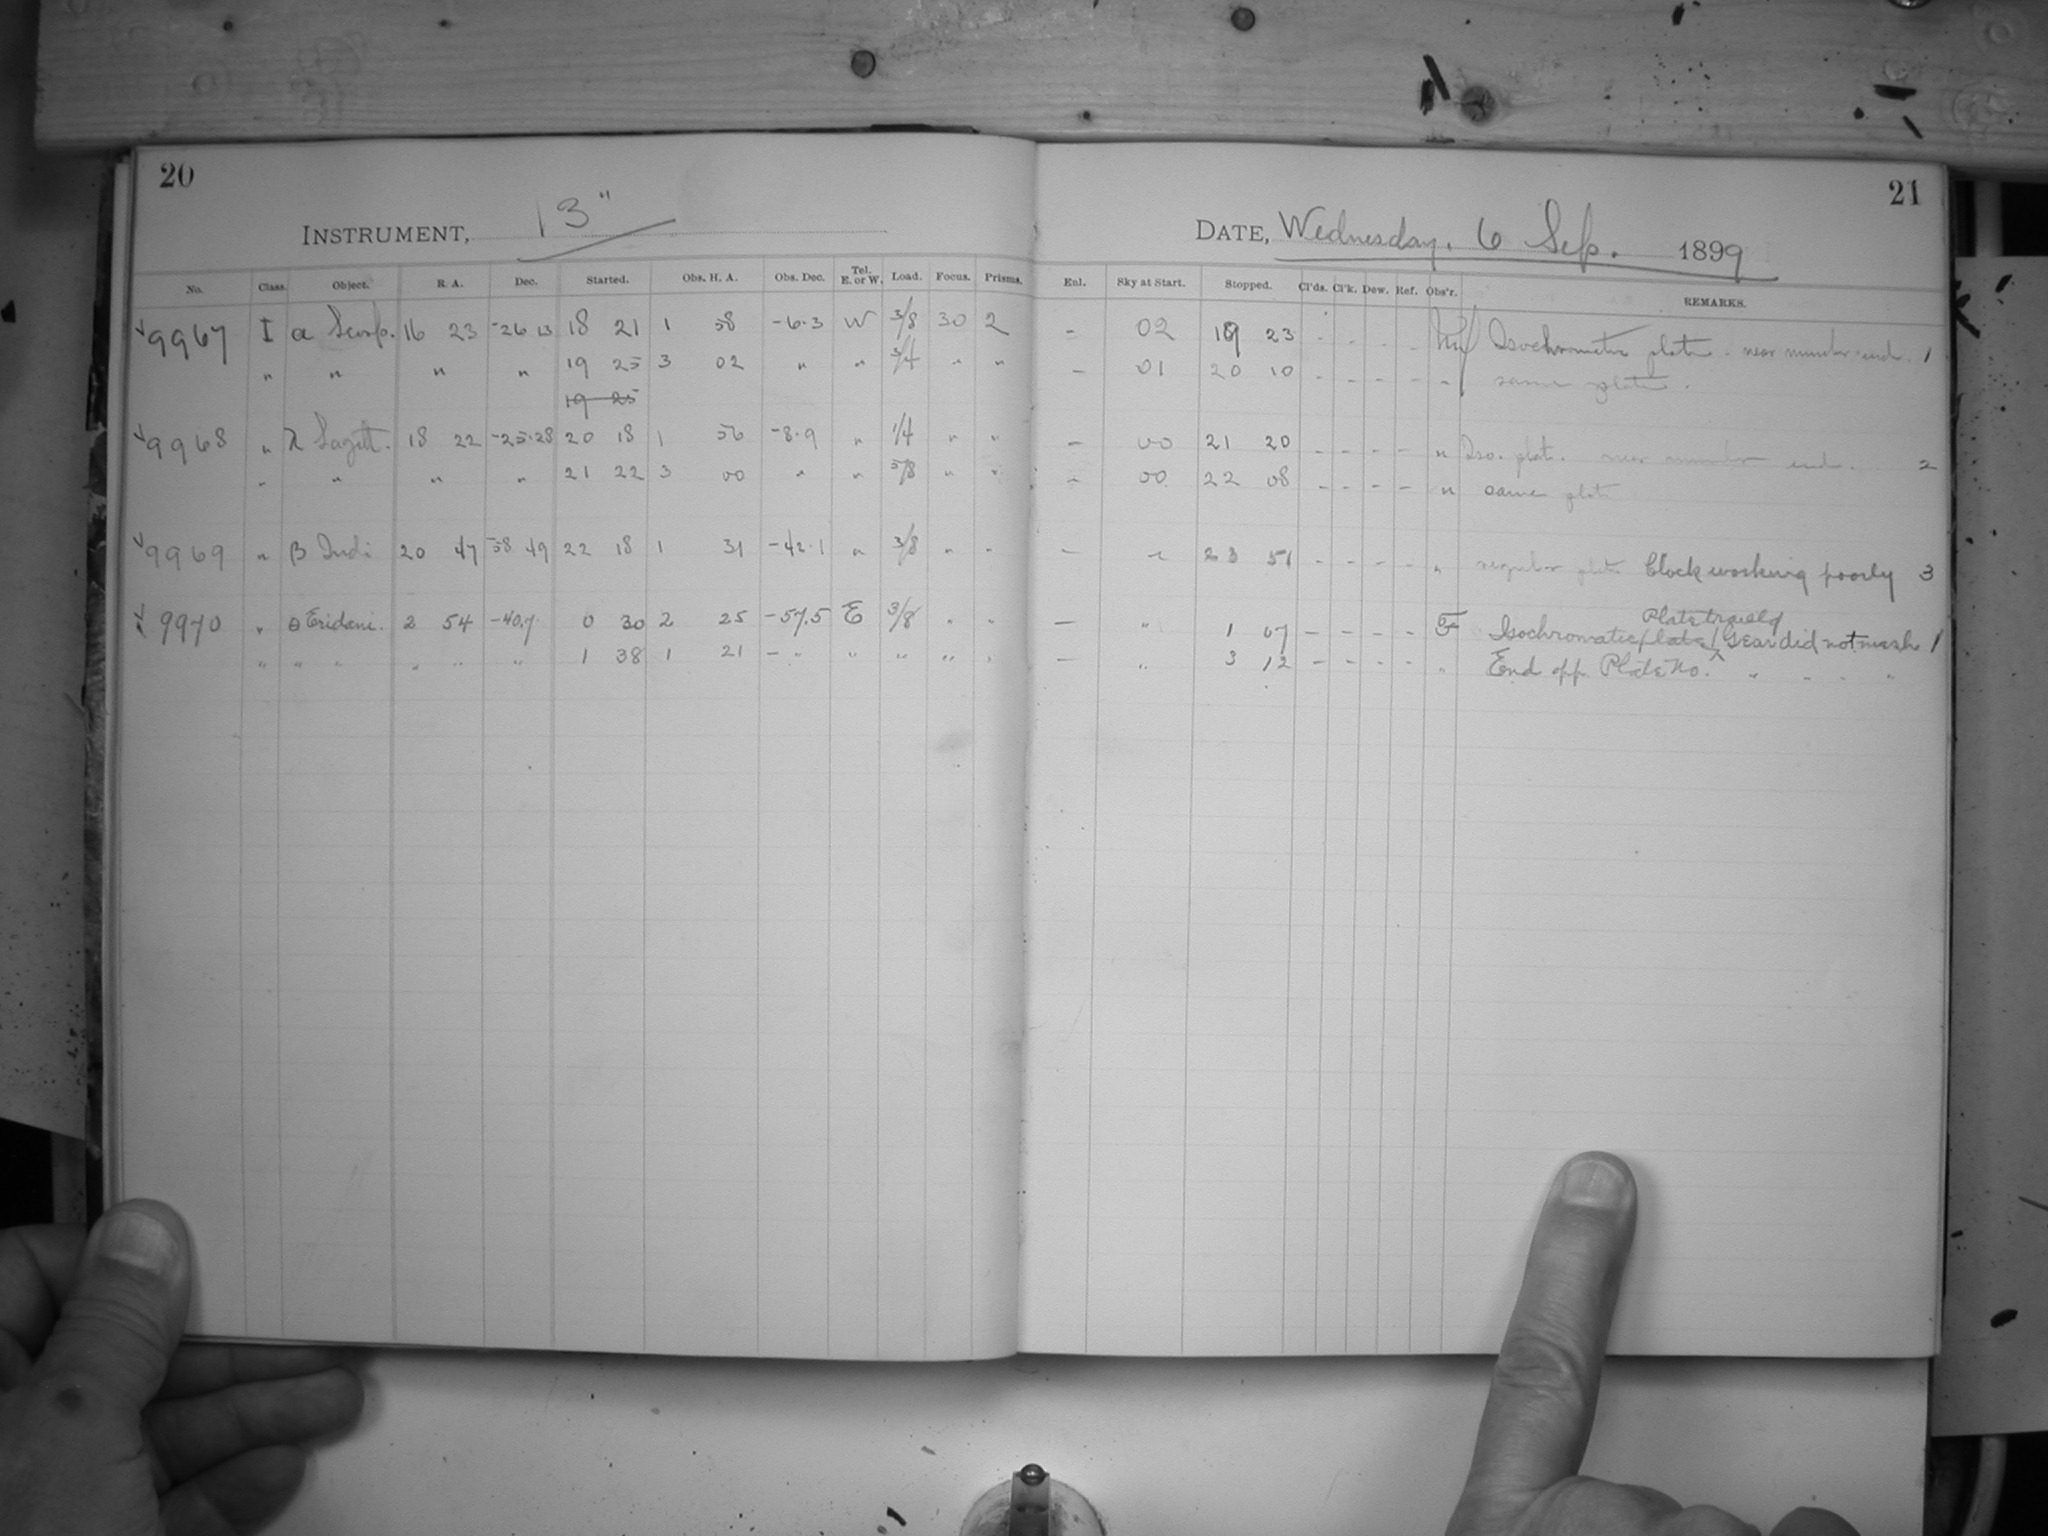 20
21
INSTRUMENT, 13"
DATE, Wednesday, 6 Sep. 1899
No. Class. Object. R. A. Dec. Started. Obs. H. A. Obs. Dec. Tel. E. or W. Load. Focus. Prisms. Enl. Sky at Start. Stopped. Cl'ds. Cl'k. Dew. Ref. Obs'r. REMARKS.
9967 I α Scorp. 16 23 -26 13 18 21 1 58 -6.3 W 3/8 30 2 - 02 19 23 - - - - Isochromatic plate - near number end. 1
" " " " 19 25 3 02 " " 3/4 " " - 01 20 10 - - - - " same plate.
19 25
9968 " λ Sagitt. 18 22 -25.28 20 18 1 56 -8.9 " 1/4 " " - 00 21 20 - - - - " Iso. plate. near number end. 2
" " " " 21 22 3 00 " " 5/8 " " - 00 22 08 - - - - " same plate
9969 " β Indi 20 47 -58 49 22 18 1 31 -42.1 " 3/8 " " - " 23 51 - - - - " regular plate Clock working poorly 3
9970 " θ Eridani. 2 54 -40.7 0 30 2 25 -57.5 E 3/8 " " - " 1 07 - - - - F Isochromatic plate / Plate traveled Gear did not mesh 1
" " " " " " 1 38 1 21 - " " " " " - " 3 12 - - - - " End opp. Plate No. " " " "